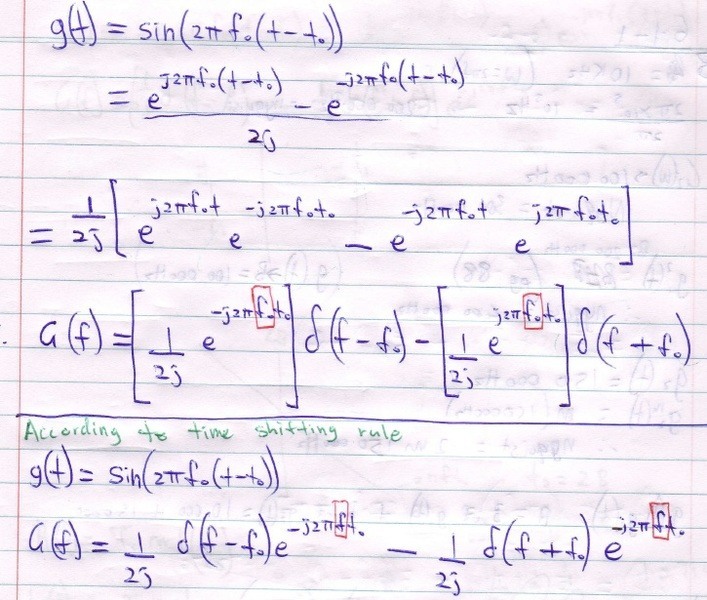 g(t) = sin(2π f₀(t-t₀))
= (e^{j2πf₀(t-t₀)} - e^{-j2πf₀(t-t₀)}) / 2j
= 1/2j [ e^{j2πf₀t} e^{-j2πf₀t₀} - e^{-j2πf₀t} e^{j2πf₀t₀} ]
G(f) = [ 1/2j e^{-j2πf₀t₀} ] δ(f-f₀) - [ 1/2j e^{j2πf₀t₀} ] δ(f+f₀)
According to time shifting rule
g(t) = sin(2πf₀(t-t₀))
G(f) = 1/2j δ(f-f₀) e^{-j2πft₀} - 1/2j δ(f+f₀) e^{-j2πft₀}